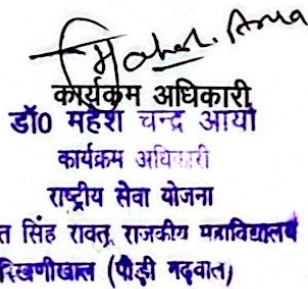 कार्यक्रम अधिकारी
डॉ0 महेश चन्द्र आर्या
कार्यक्रम अधिकारी
राष्ट्रीय सेवा योजना
त सिंह रावत, राजकीय महाविद्यालय
रिखणीखाल (पौड़ी गढ़वाल)